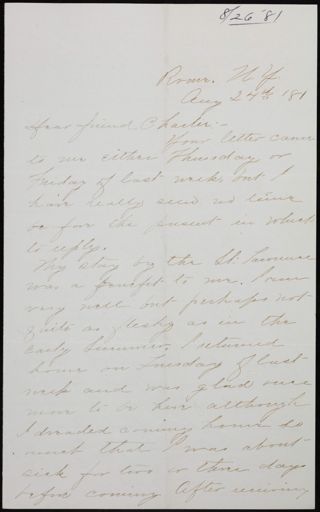 8/26 '81
Rome, N.Y.
Aug 24th '81
Dear friend Charles:-
Your letter came
to me either Thursday or
Friday of last week, but I
have really seen no time
before the present in which
to reply.
My stay by the St. Lawrence
was a benefit to me. I am
very well but perhaps not
quite as fleshy as in the
early Summer. I returned
home on Tuesday of last
week and was glad once
more to be here although
I dreaded coming home so
much that I was about
sick for two or three days
before coming. After receiving